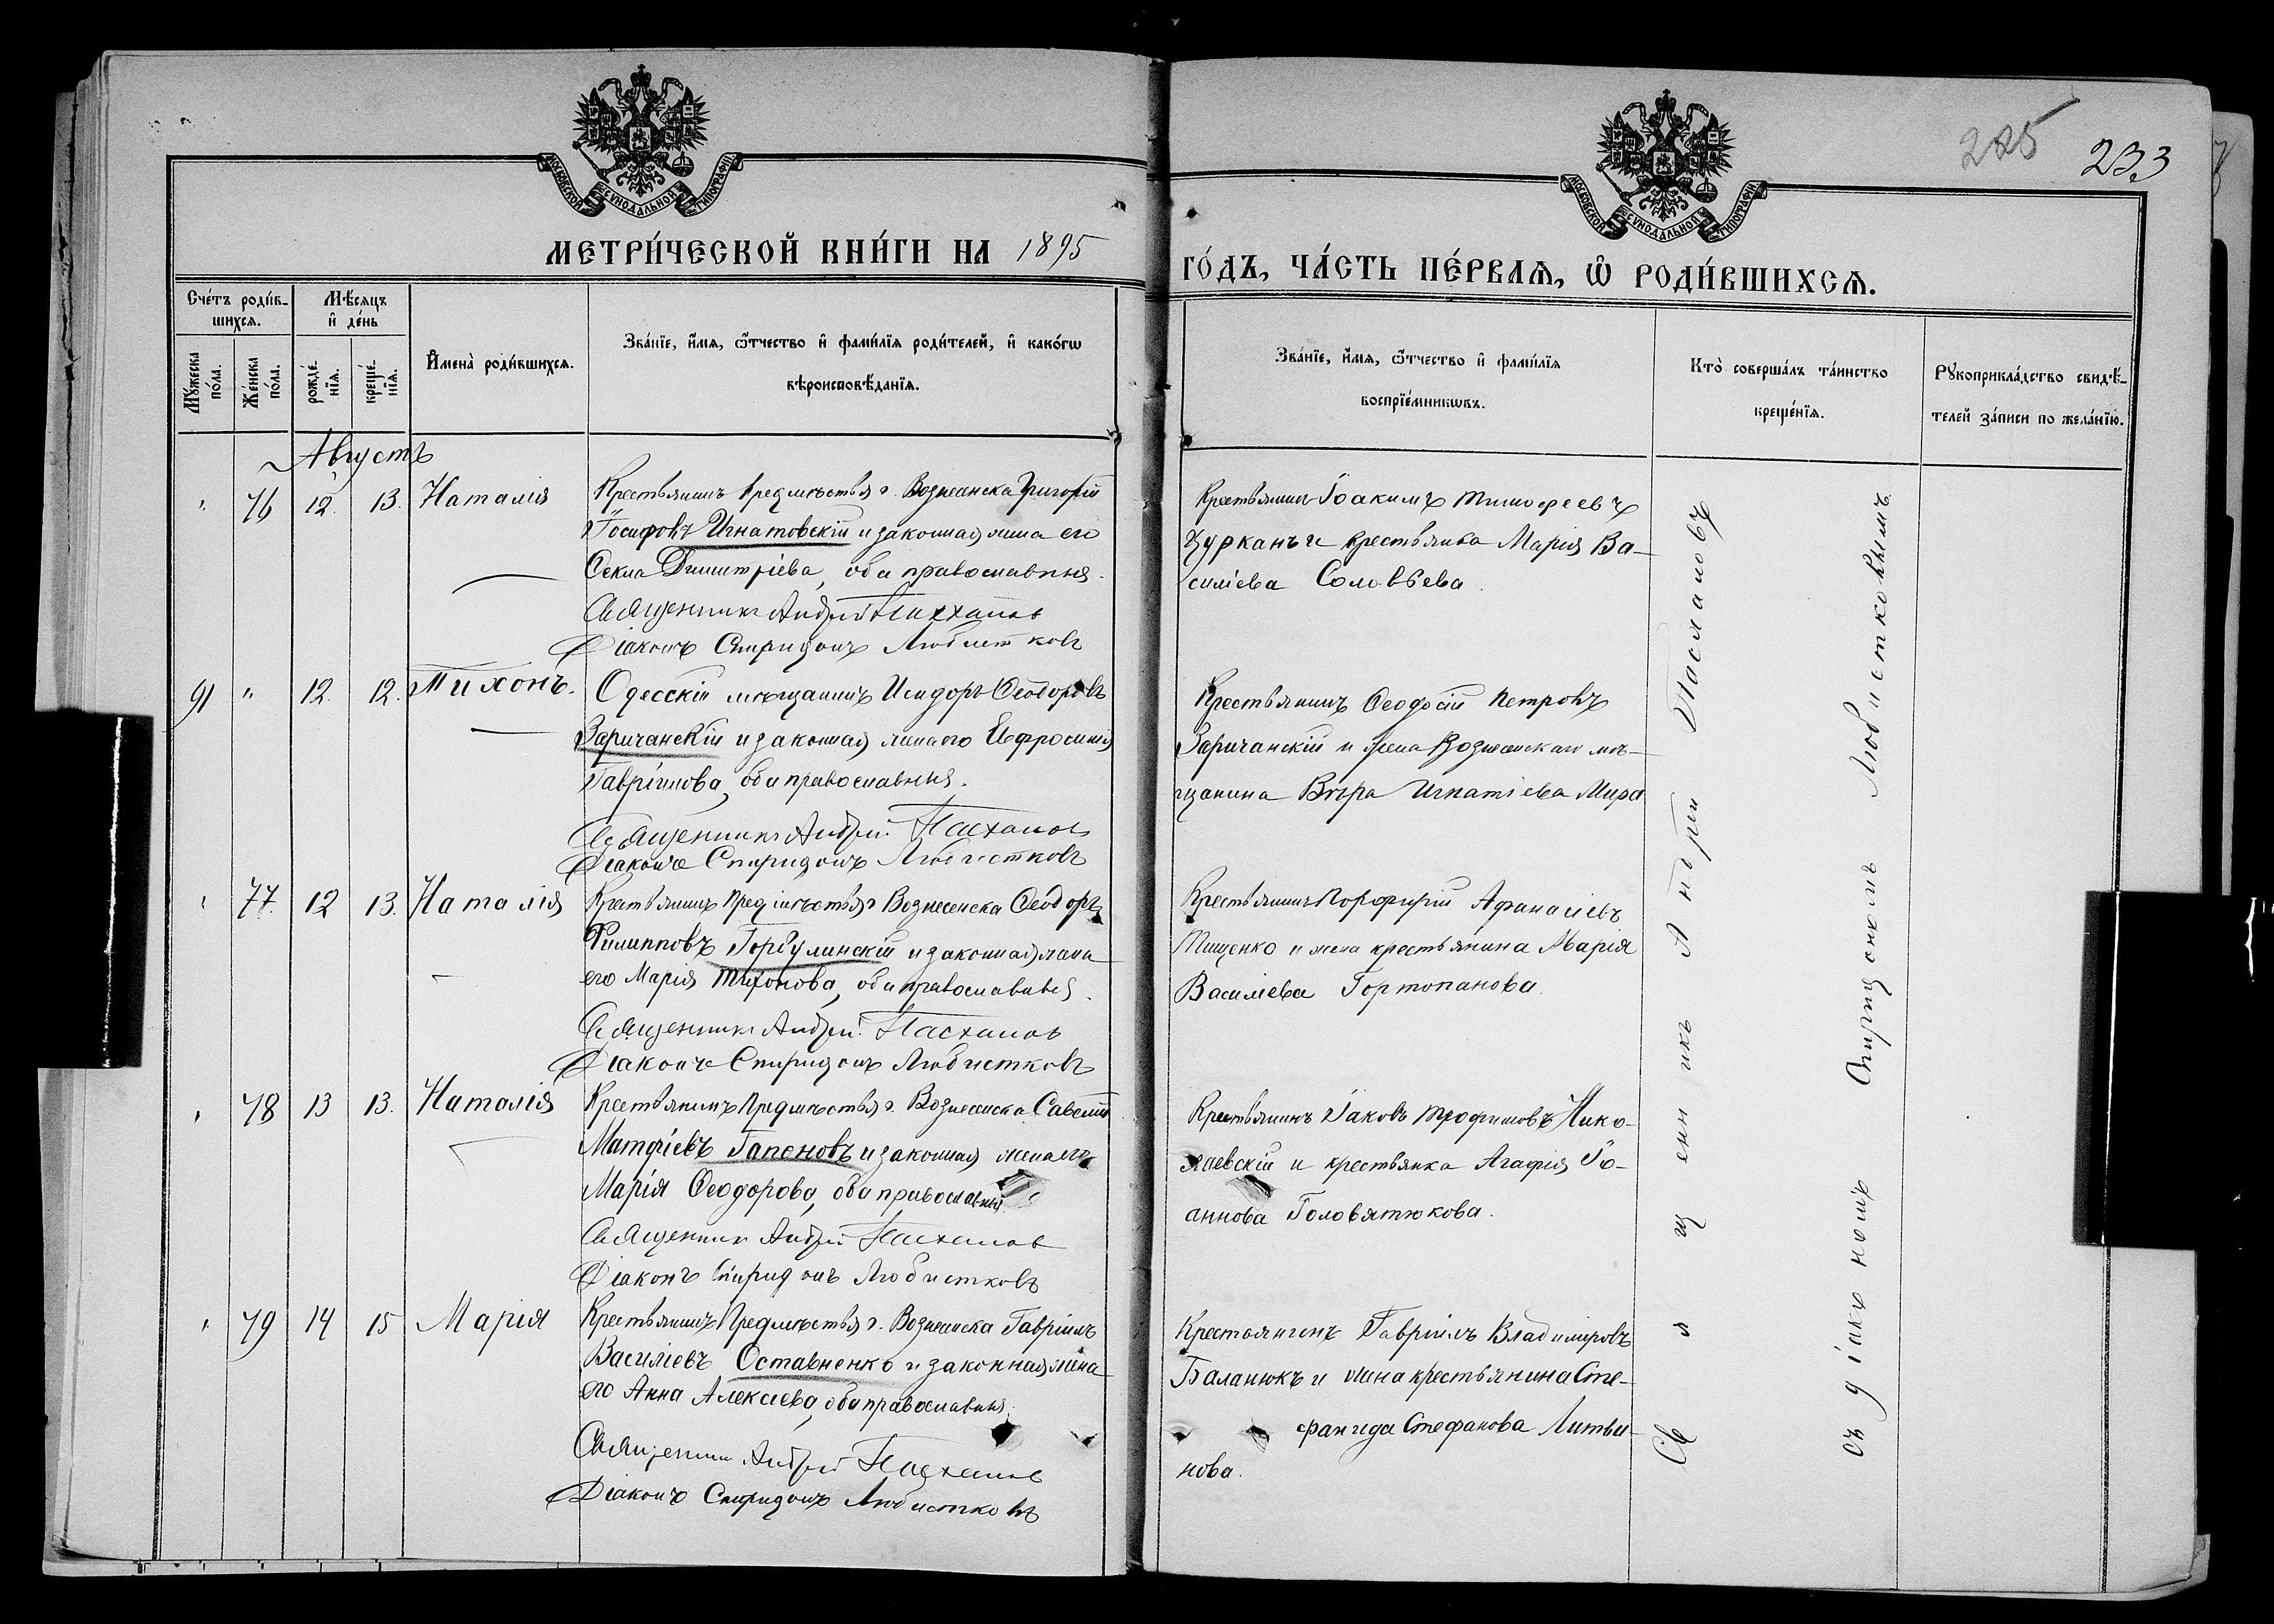 225
233
МОСКОВСКОЙ СѴНОДАЛЬНОЙ ТИПОГРАФІИ
МОСКОВСКОЙ СѴНОДАЛЬНОЙ ТИПОГРАФІИ
МЕТРИ́ЧЕСКОЙ КНИ́ГИ НА 1895
ГО́ДЪ, ЧА́СТЬ ПЕ́РВАѦ, Ѡ҆ РОДИ́ВШИХСѦ.
Сче́тъ роди́в-
шихсѧ.
Мꙋ́жеска по́ла.
Же́нска по́ла.
Мѣ́сяцъ
и҆ де́нь
рожде́-
нїѧ.
креще́-
нїѧ.
И҆мена̀ роди́вшихсѧ.
Зва́нїе, и҆́мѧ, ѻ҆́тчество и҆ фами́лїѧ роди́телей, и҆ како́гѡ
вѣроисповѣ́данїѧ.
Зва́нїе, и҆́мѧ, ѻ҆́тчество и҆ фами́лїѧ
воспрїе́мникѡвъ.
Кто̀ соверша́лъ та́инство
креще́нїѧ.
Рꙋкоприкла́дство свидѣ́-
телей за́писи по жела́нїю.
Августъ
" 76 12. 13. Наталія
Крестьянинъ предмѣстья г. Вознесенска Григорій
Іосифовъ Игнатовскій и законная жена его
Димитріева, оба православныя.
Священникъ Андрей
Діаконъ Спиридонъ Любистковъ
Крестьянинъ Іоакимъ Тимофеевъ
Цурканъ и крестьянка Марія Ва-
силіева Соловьева.
91 " 12. 12. Тихонъ.
Одесскій мѣщанинъ Исидоръ Ѳеодоровъ
Заричанскій и законная жена его Евфросинія
Гавріилова, оба православныя.
Священникъ Андрей
Діаконъ Спиридонъ Любистковъ
Крестьянинъ Ѳеодосій Петровъ
Заричанскій и жена Вознесенскаго мѣ-
щанина Вѣра Игнатіева Мира
" 77. 12 13. Наталія
Крестьянинъ предмѣстья г. Вознесенска Ѳеодоръ
Филипповъ Горбулинскій и законная жена
его Марія Тихонова, оба православныя.
Священникъ Андрей
Діаконъ Спиридонъ Любистковъ
Крестьянинъ Порфирій Афанасіевъ
Тищенко и жена крестьянина Марія
Василіева Гортопанова.
" 78 13 13. Наталія
Крестьянинъ предмѣстья г. Вознесенска Савелій
Матфіевъ Гапоновъ и законная жена его
Марія Ѳеодорова, оба православныя
Священникъ Андрей
Діаконъ Спиридонъ Любистковъ
Крестьянинъ Іаковъ Трофимовъ Нико-
лаевскій и крестьянка Агафія Іо-
аннова Головятюкова.
" 79 14 15 Марія
Крестьянинъ Предмѣстья г. Вознесенска Гавріилъ
Василіевъ Оставненко и законная жена
его Анна Алексіева, оба православныя.
Священникъ Андрей
Діаконъ Спиридонъ Любистковъ
Крестоянинъ Гавріилъ Владиміровъ
Баланюкъ и жена крестьянина Сте-
фанида Стефанова Литви-
нова.
Священникъ Андрей
съ діакономъ Спиридономъ Любистковымъ